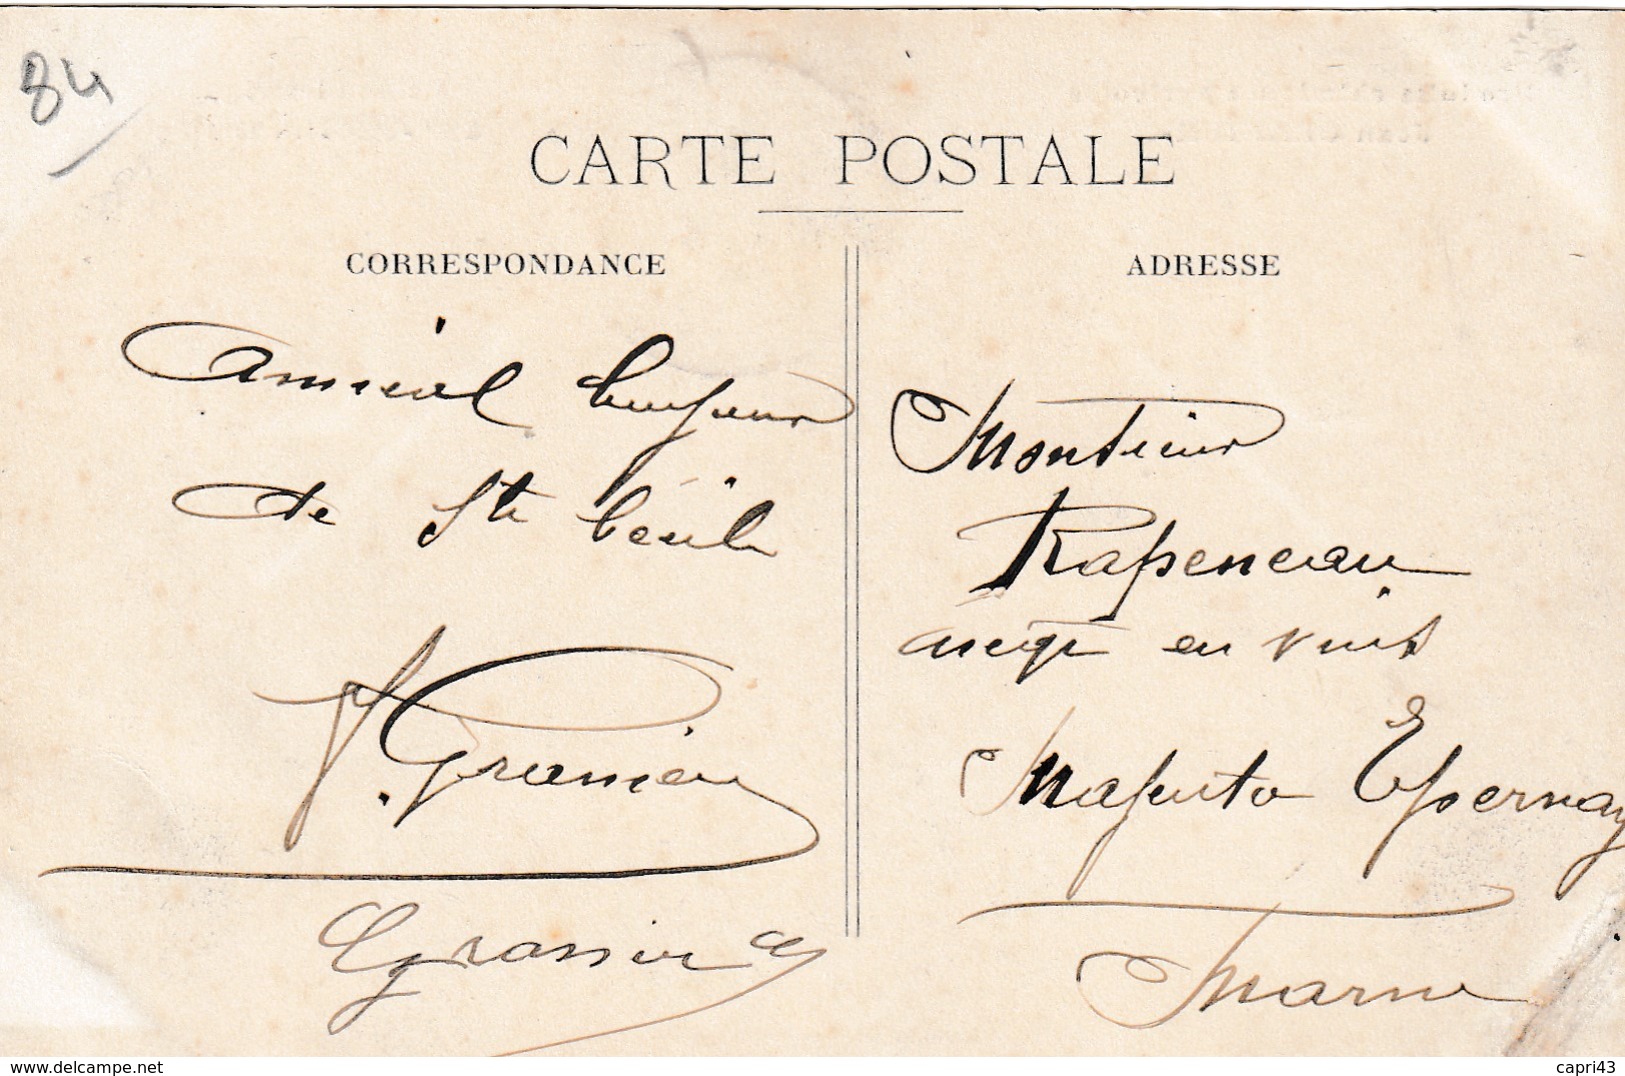 84
CARTE POSTALE
CORRESPONDANCE
Amical bonjour
de Ste Cécile
ADRESSE
Monsieur
Rapeneau
négt en vins
Magenta Epernay
Marne
www.delcampe.net
capri43